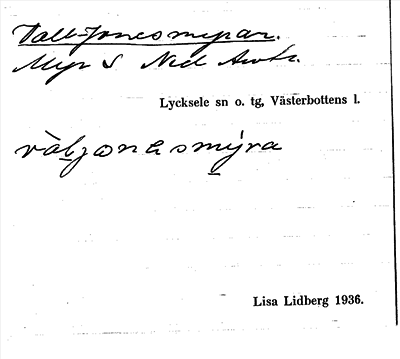 Vall-Jonesmyran.
Myr S Ned Avtr.
Lycksele sn o. tg, Västerbottens l.
vàljonasmýra
Lisa Lidberg 1936.